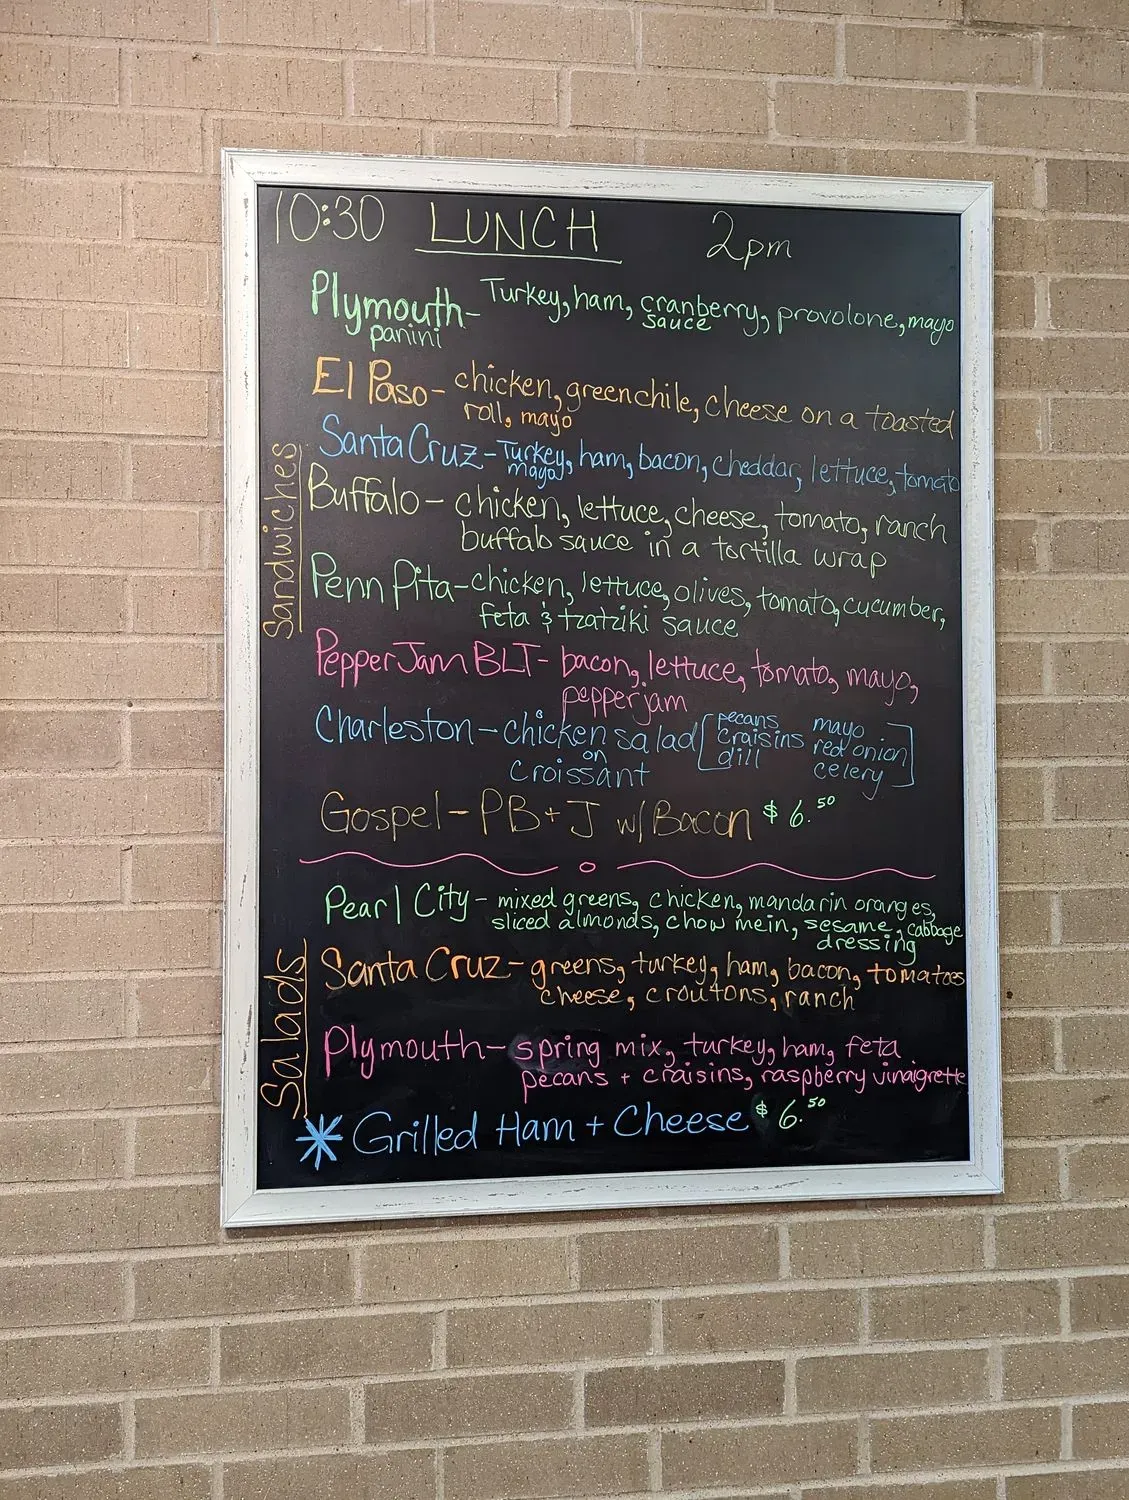 10:30 LUNCH 2pm
Plymouth- Turkey, ham, cranberry, provolone, mayo
panini sauce
El Paso- chicken, green chile, cheese on a toasted
roll, mayo
Sandwiches
Santa Cruz - Turkey, ham, bacon, cheddar, lettuce, tomato
mayo
Buffalo - chicken, lettuce, cheese, tomato, ranch
buffalo sauce in a tortilla wrap
Penn Pita - chicken, lettuce, olives, tomato, cucumber,
feta & tzatziki sauce
Pepper Jam BLT - bacon, lettuce, tomato, mayo,
pepper jam
Charleston - chicken salad [pecans mayo
craisins red onion
dill celery]
on
croissant
Gospel - PB + J w/ Bacon $ 6.50
Salads
Pearl City - mixed greens, chicken, mandarin oranges,
sliced almonds, chow mein, sesame, cabbage
dressing
Santa Cruz - greens, turkey, ham, bacon, tomatoes
cheese, croutons, ranch
Plymouth - spring mix, turkey, ham, feta
pecans + craisins, raspberry vinaigrette
* Grilled Ham + Cheese $ 6.50